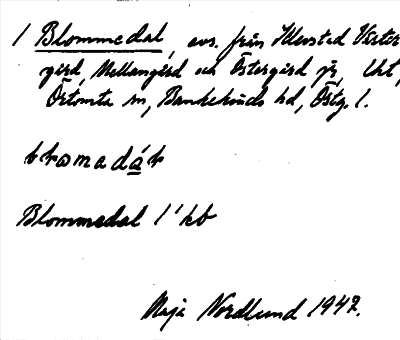 1 Blommedal, avs. från Ullevstad Väster-
gård, Mellangård och Östergård jr, Ukt,
Örtomta sn, Bankekinds hd, Östg. l.
Blommedal 1/ kb
Maja Nordlund 1947.